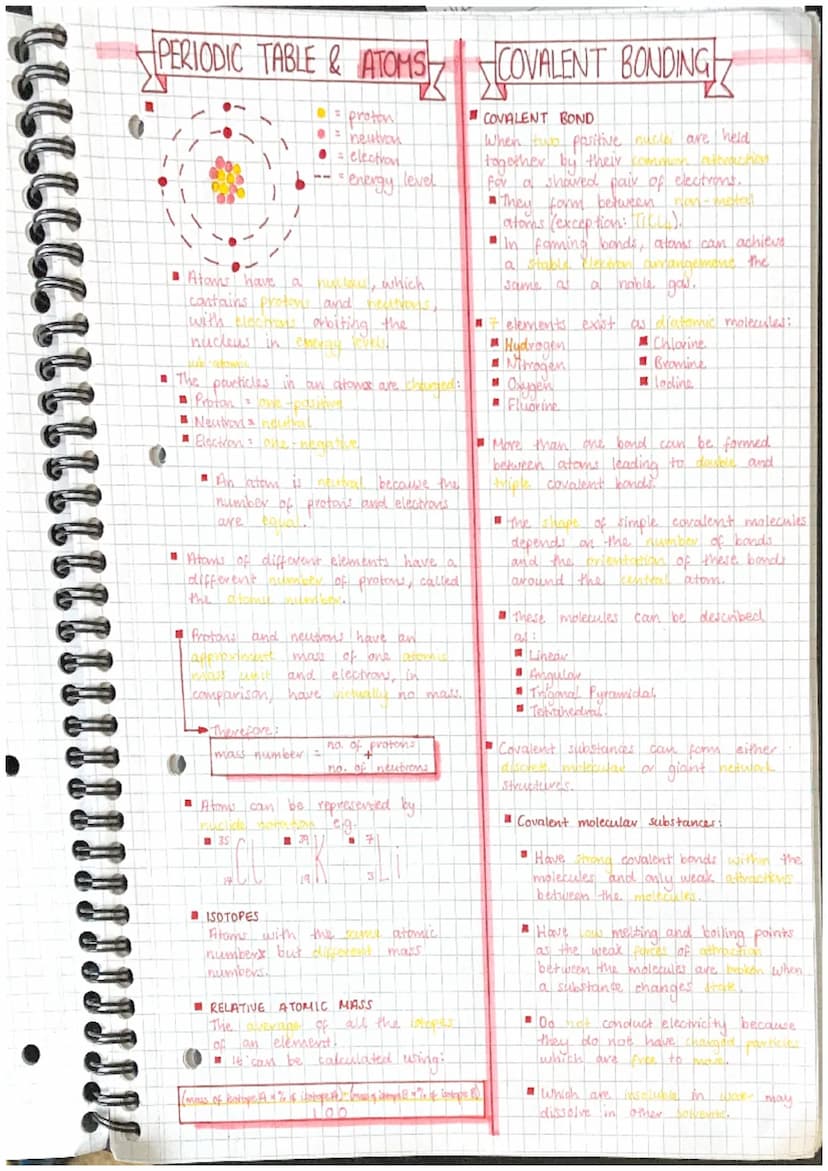 PERIODIC TABLE & ATOMS
= proton
= neutron
= electron
-- = energy level
Atoms have a nucleus, which
contains protons and neutrons,
with electrons orbiting the
nucleus in energy levels.
sub atomic
The particles in an atom are charged:
Proton = one-positive
Neutron = neutral
Electron = one-negative
An atom is neutral because the
number of protons and electrons
are equal.
Atoms of different elements have a
different number of protons, called
the atomic number.
Protons and neutrons have an
approximate mass of one atomic
mass unit and electrons, in
comparison, have virtually no mass.
Therefore:
mass number = no. of protons
+
no. of neutrons
Atoms can be represented by
nuclide notation e.g.
35 39 7
Cl K Li
17 19 3
ISOTOPES
Atoms with the same atomic
numbers but different mass
numbers.
RELATIVE ATOMIC MASS
The average of all the isotopes
of an element.
It can be calculated using:
(mass of isotope A × % of isotope A) + (mass of isotope B × % of isotope B)
100
COVALENT BONDING
COVALENT BOND
When two positive nuclei are held
together by their common attraction
for a shared pair of electrons.
They form between non-metal
atoms (exception: TiCl4).
In forming bonds, atoms can achieve
a stable electron arrangement the
same as a noble gas.
7 elements exist as diatomic molecules:
Hydrogen
Nitrogen
Oxygen
Fluorine
Chlorine
Bromine
Iodine
More than one bond can be formed
between atoms leading to double and
triple covalent bonds.
The shape of simple covalent molecules
depends on the number of bonds
and the orientation of these bonds
around the central atom.
These molecules can be described
as:
Linear
Angular
Trigonal Pyramidal
Tetrahedral.
Covalent substances can form either
discrete molecular or giant network
structures.
Covalent molecular substances:
Have strong covalent bonds within the
molecules and only weak attractions
between the molecules.
Have low melting and boiling points
as the weak forces of attraction
between the molecules are broken when
a substance changes state.
Do not conduct electricity because
they do not have charged particles
which are free to move.
Which are insoluble in water may
dissolve in other solvents.